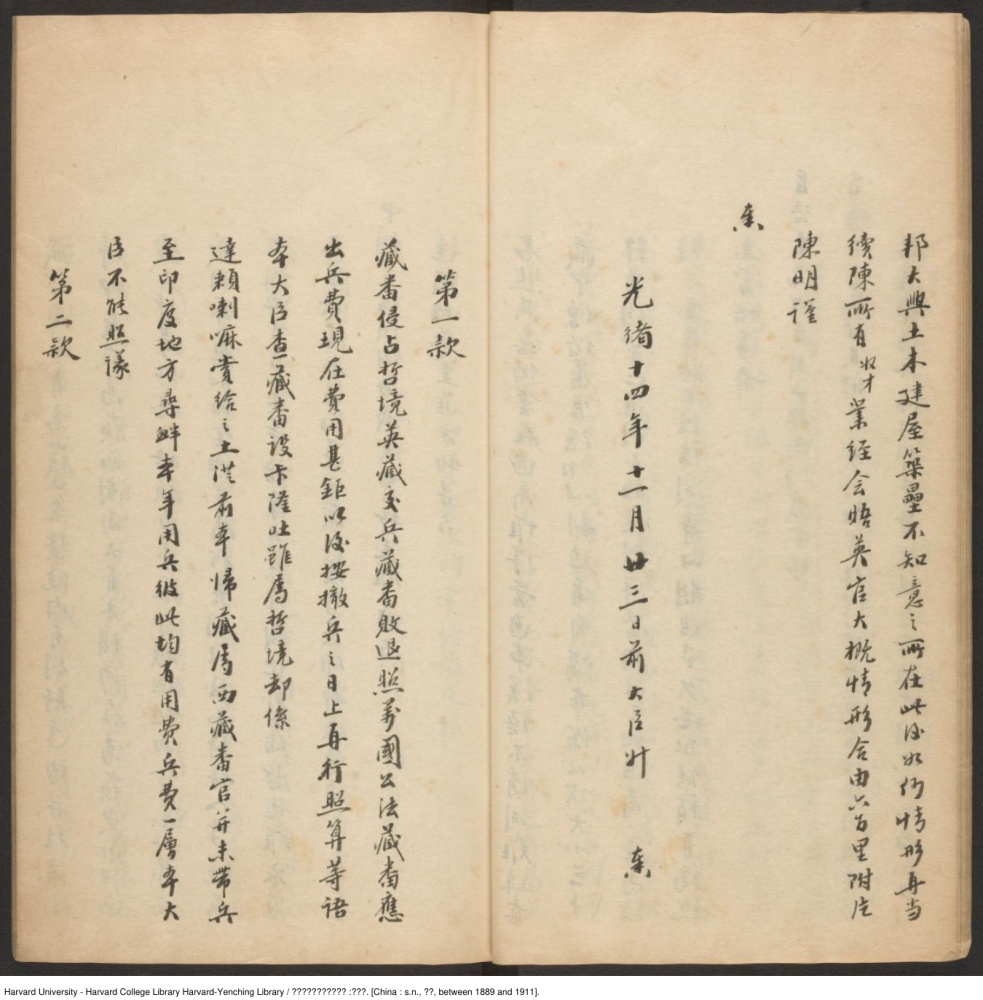 邦大興土木建屋築壘不知意之所在此後如何情形再当
續陳所有奴才業經会晤英官大概情形合由六百里附片
陳明謹
奏
光緒十四年十一月廿三日前大臣升 奏
第一款
藏番侵占哲境英藏交兵藏番敗退照萬國公法藏番應
出兵費現在費用甚鉅以後按撤兵之日上再行照算等語
本大臣查藏番設卡隆吐雖属哲境却係
達賴喇嘛賞給之土从前本歸藏属西藏番官并未帶兵
至印度地方尋衅本年用兵彼此均有用費兵費一層本大
臣不能照議
第二款
Harvard University - Harvard College Library Harvard-Yenching Library / ??????????? :???. [China : s.n., ??, between 1889 and 1911].